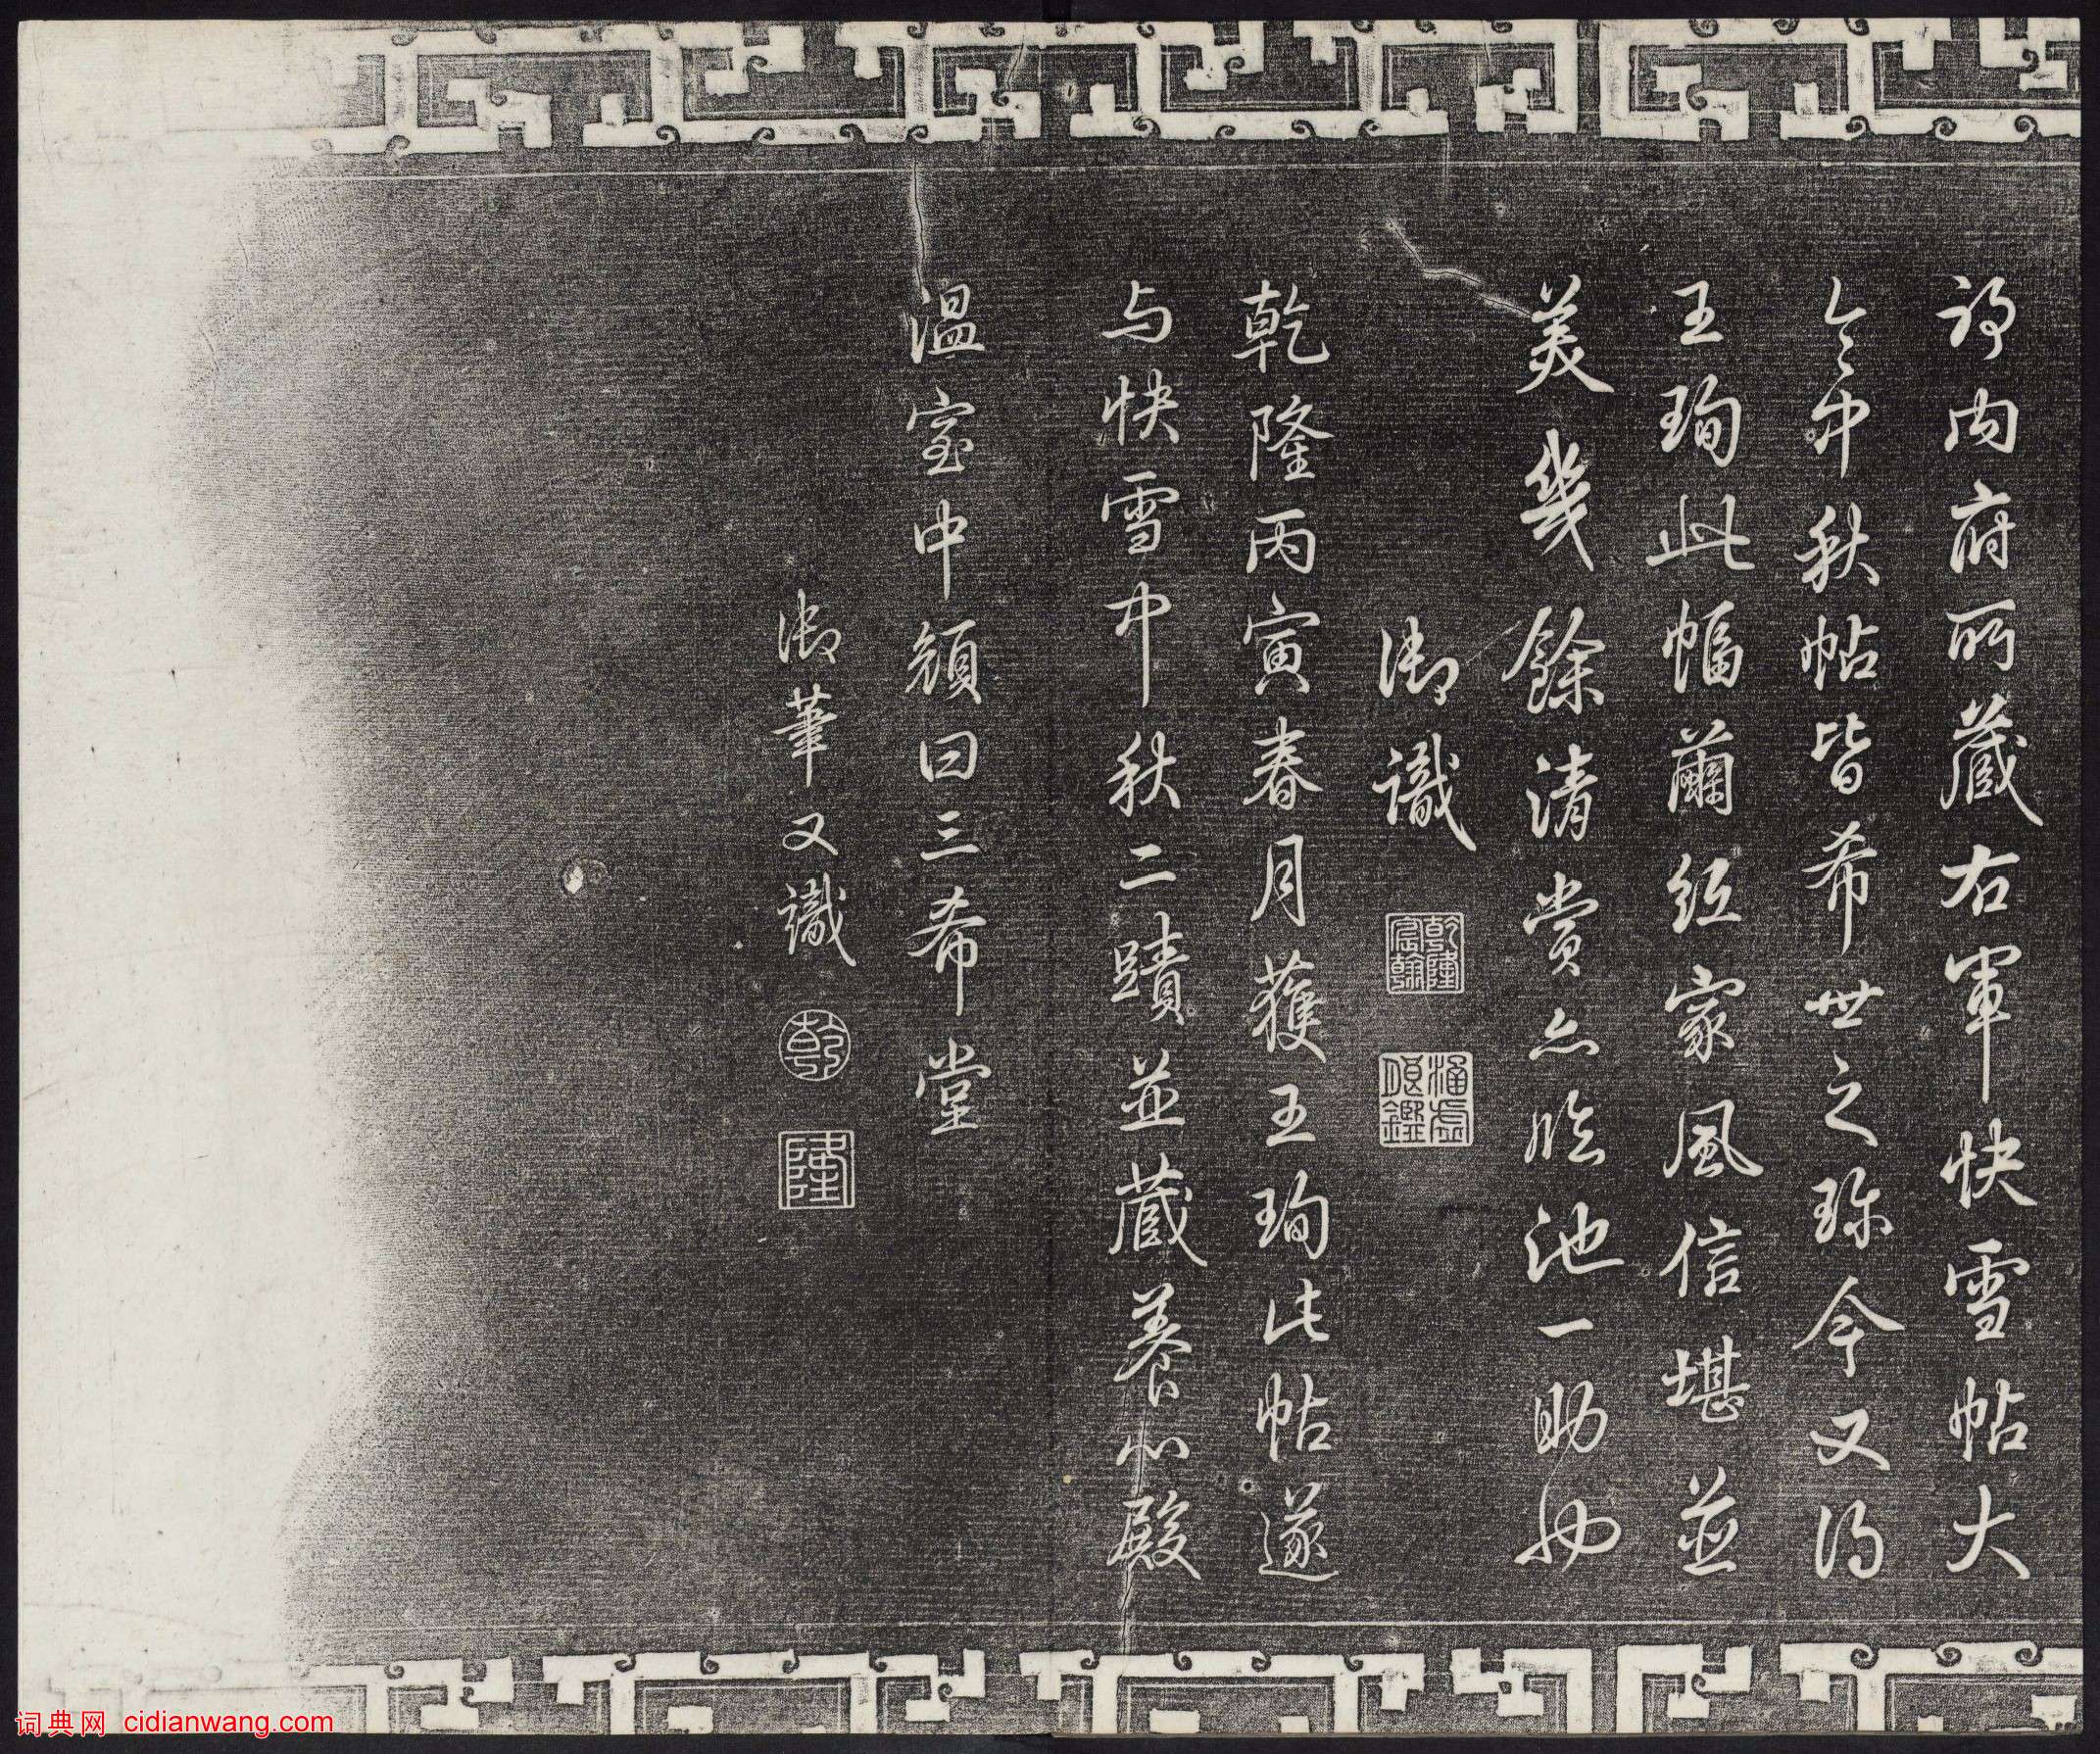 珎内府所藏右軍快雪帖大
令中秋帖皆希世之珎今又得
王珣此幅蠒纸家風信堪並
美幾餘清赏亦臨池一助也
御識
乾隆宸翰
涵虚朗鑑
乾隆丙寅春月獲王珣此帖遂
与快雪中秋二蹟並藏養心殿
温室中顔曰三希堂
御筆又識
乾
隆
词典网 cidianwang.com